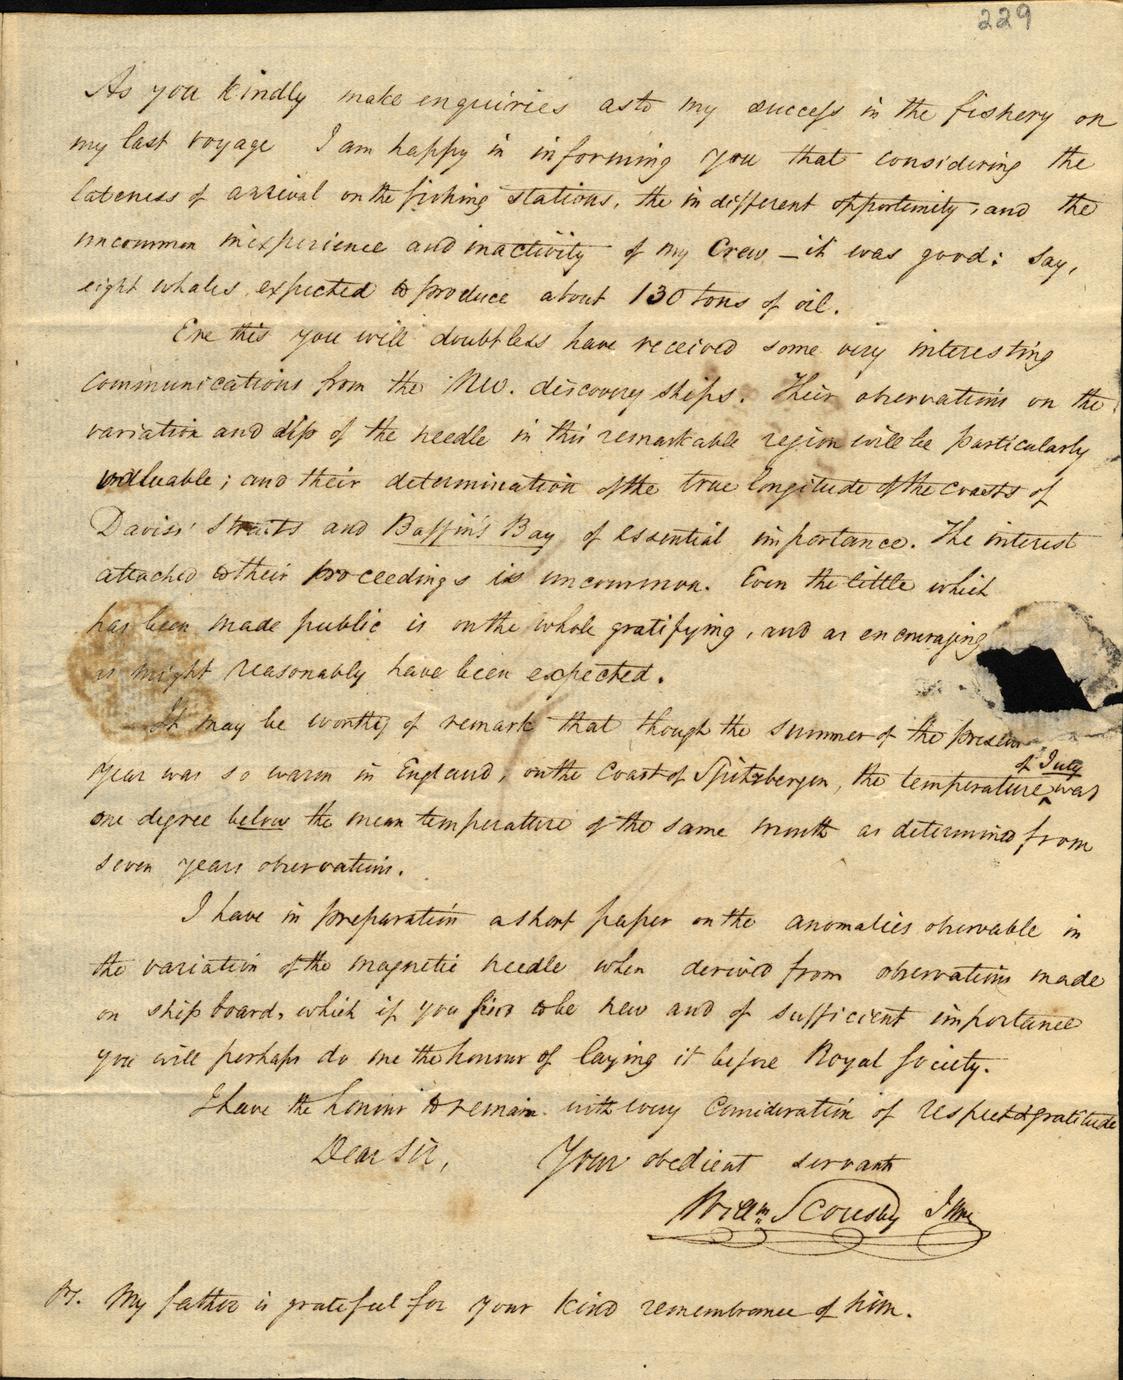 229
As you kindly make enquiries as to my success in the fishery on
my last voyage I am happy in informing you that considering the
lateness of arrival on the fishing stations, the indifferent opportunity, and the
uncommon inexperience and inactivity of my Crew – it was good: say,
eight whales expected to produce about 130 tons of oil.
Ere this you will doubtless have received some very interesting
communications from the NW. discovery ships. Their observations on the
variation and dip of the needle in this remarkable region will be particularly
valuable; and their determination of the true longitude of the coasts of
Davis' Straits and Baffin's Bay of essential importance. The interest
attached to their proceedings is uncommon. Even the little which
has been made public is on the whole gratifying, and as encouraging
as might reasonably have been expected.
It may be worthy of remark that though the summer of the present
of July
year was so warm in England, on the coast of Spitzbergen, the temperature ‸ was
one degree below the mean temperature of the same month as determined from
seven years observations.
I have in preparation a short paper on the anomalies observable in
the variation of the magnetic needle when derived from observations made
on ship board, which if you find to be new and of sufficient importance
you will perhaps do me the honour of laying it before Royal Society.
I have the honour to remain with every consideration of respect & gratitude
Dear Sir, Your obedient servant
Willm Scoresby Junr
PS. My father is grateful for your kind remembrance of him.